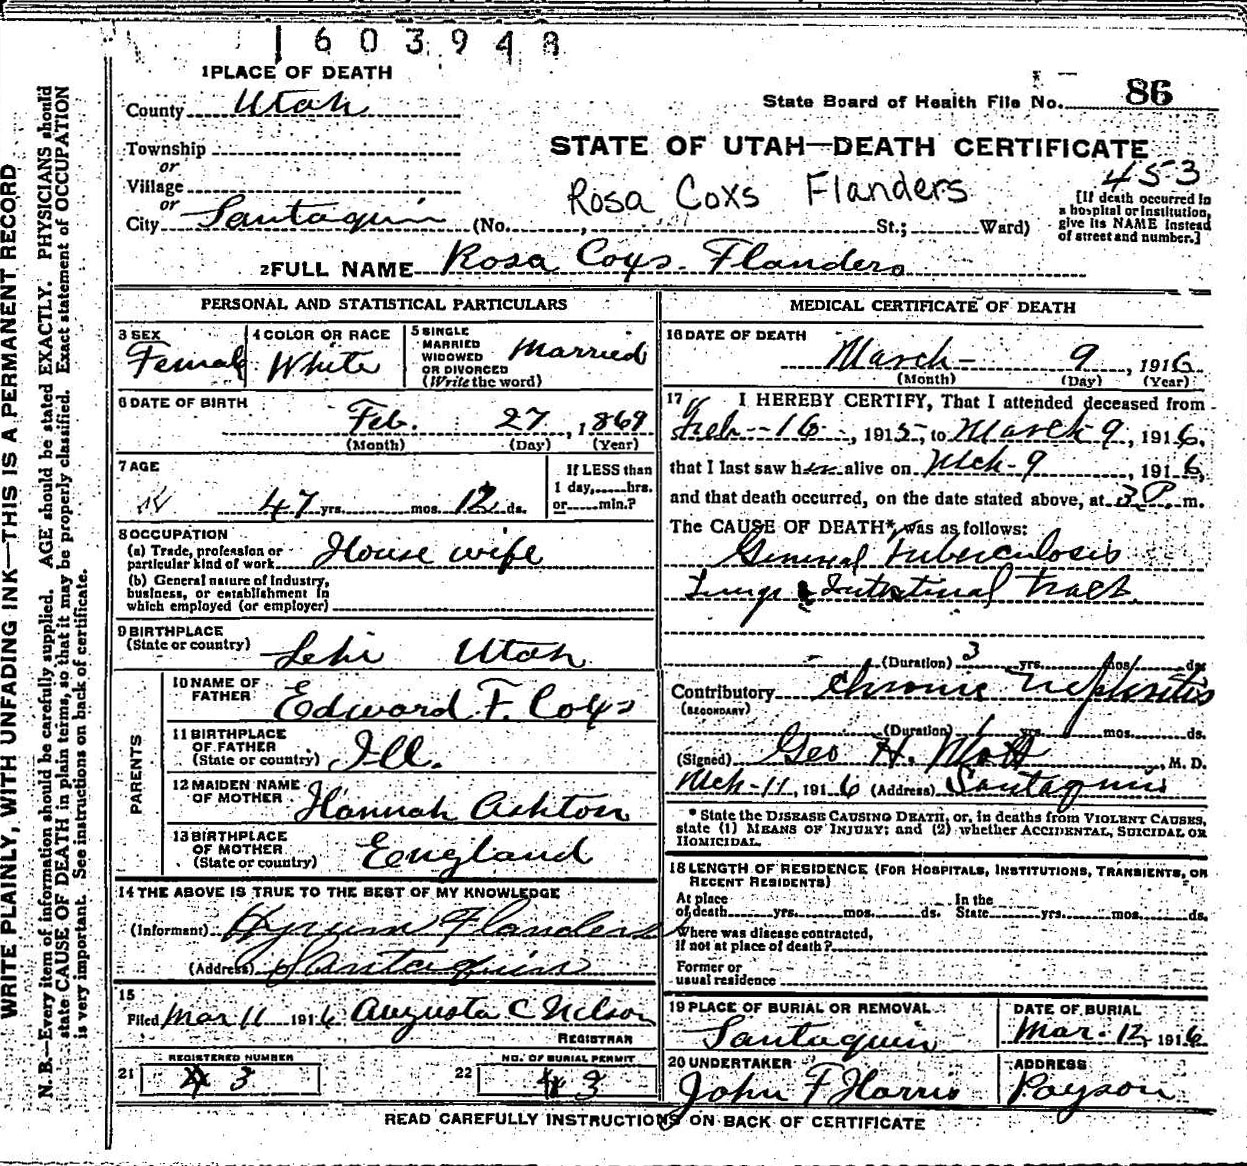 1603948
1 PLACE OF DEATH
County Utah
State Board of Health File No. 86
Township
or
Village
or
City Santaquin (No. , St.; Ward)
STATE OF UTAH—DEATH CERTIFICATE
453
Rosa Coxs Flanders
[If death occurred in
a hospital or institution,
give its NAME instead
of street and number.]
2 FULL NAME Rosa Coxs Flanders
PERSONAL AND STATISTICAL PARTICULARS
3 SEX
Female
4 COLOR OR RACE
White
5 SINGLE
MARRIED
WIDOWED
OR DIVORCED
(Write the word)
Married
6 DATE OF BIRTH
Feb. 27, 1869
(Month) (Day) (Year)
7 AGE
47 yrs. mos. 12 ds.
If LESS than
1 day, hrs.
or min.?
8 OCCUPATION
(a) Trade, profession or
particular kind of work House wife
(b) General nature of industry,
business, or establishment in
which employed (or employer)
9 BIRTHPLACE
(State or country) Lehi Utah
PARENTS
10 NAME OF
FATHER Edward F. Coxs
11 BIRTHPLACE
OF FATHER
(State or country) Ill.
12 MAIDEN NAME
OF MOTHER Hannah Ashton
13 BIRTHPLACE
OF MOTHER
(State or country) England
14 THE ABOVE IS TRUE TO THE BEST OF MY KNOWLEDGE
(Informant) Hyrum Flanders
(Address) Santaquin
15
Filed Mar 11 1916 Augusta C Nelson
REGISTRAR
21 REGISTERED NUMBER
3
22 NO. OF BURIAL PERMIT
3
MEDICAL CERTIFICATE OF DEATH
16 DATE OF DEATH
March 9, 1916
(Month) (Day) (Year)
17 I HEREBY CERTIFY, That I attended deceased from
Feb-16-, 1915, to March 9, 1916,
that I last saw her alive on Mch-9, 1916,
and that death occurred, on the date stated above, at 3 P. m.
The CAUSE OF DEATH* was as follows:
General Tuberculosis
Lungs & Intestinal tract
(Duration) 3 yrs. mos. ds.
Contributory Chronic Nephritis
(SECONDARY)
(Duration) 1 yrs. mos. ds.
(Signed) Geo H. Mott, M. D.
Mch-11, 1916 (Address) Santaquin
* State the DISEASE CAUSING DEATH, or, in deaths from VIOLENT CAUSES,
state (1) MEANS OF INJURY; and (2) whether ACCIDENTAL, SUICIDAL OR
HOMICIDAL.
18 LENGTH OF RESIDENCE (FOR HOSPITALS, INSTITUTIONS, TRANSIENTS, OR
RECENT RESIDENTS)
At place
of death yrs. mos. ds.
In the
State yrs. mos. ds.
Where was disease contracted,
if not at place of death?
Former or
usual residence
19 PLACE OF BURIAL OR REMOVAL
Santaquin
DATE OF BURIAL
Mar. 12, 1916
20 UNDERTAKER
John F Harris
ADDRESS
Payson
READ CAREFULLY INSTRUCTIONS ON BACK OF CERTIFICATE
WRITE PLAINLY, WITH UNFADING INK—THIS IS A PERMANENT RECORD
N. B.—Every item of information should be carefully supplied. AGE should be stated EXACTLY. PHYSICIANS should
state CAUSE OF DEATH in plain terms, so that it may be properly classified. Exact statement of OCCUPATION
is very important. See instructions on back of certificate.